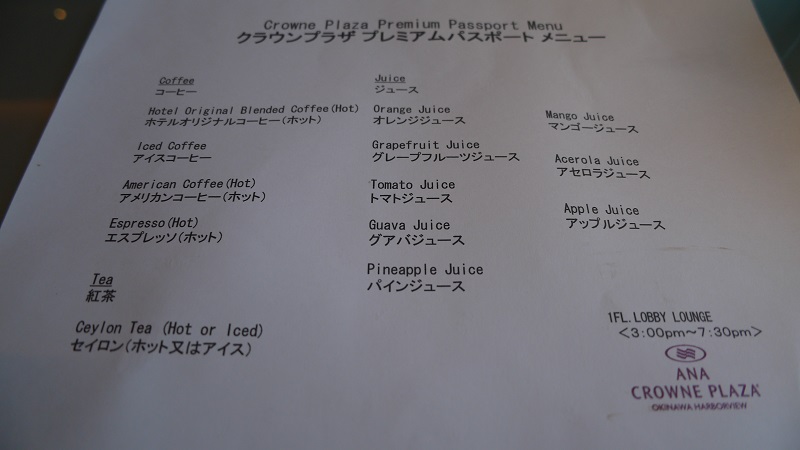 Crowne Plaza Premium Passport Menu
クラウンプラザ プレミアムパスポート メニュー
Coffee
コーヒー
Hotel Original Blended Coffee(Hot)
ホテルオリジナルコーヒー(ホット)
Iced Coffee
アイスコーヒー
American Coffee(Hot)
アメリカンコーヒー(ホット)
Espresso(Hot)
エスプレッソ(ホット)
Tea
紅茶
Ceylon Tea (Hot or Iced)
セイロン(ホット又はアイス)
Juice
ジュース
Orange Juice
オレンジジュース
Grapefruit Juice
グレープフルーツジュース
Tomato Juice
トマトジュース
Guava Juice
グアバジュース
Pineapple Juice
パインジュース
Mango Juice
マンゴージュース
Acerola Juice
アセロラジュース
Apple Juice
アップルジュース
1FL.LOBBY LOUNGE
<3:00pm～7:30pm>
ANA
CROWNE PLAZA
OKINAWA HARBORVIEW